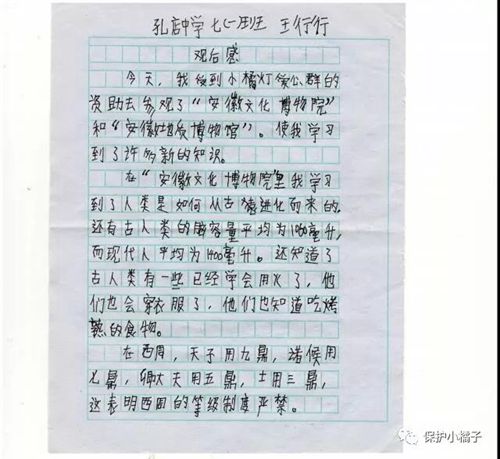 孔店中学 七(一)班 王行行
观后感
今天,我受到小橘灯爱心群的
资助去参观了“安徽文化博物院”
和“安徽地质博物馆”。使我学习
到了许多新的知识。
在“安徽文化博物院”里我学习
到了人类是如何从古猿进化而来的
还有古人类的脑容量平均为1060毫升,
而现代人平均为1400毫升。还知道了
古人类有一些已经学会用火了,他
们也会穿衣服了,他们也知道吃烤
熟的食物。
在西周,天子用九鼎,诸候用
七鼎,卿大夫用五鼎,士用三鼎,
这表明西周的等级制度严禁。
保护小橘子